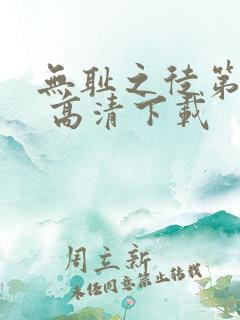 無耻之徒第
高清下載
周立新
未经同意禁止转载